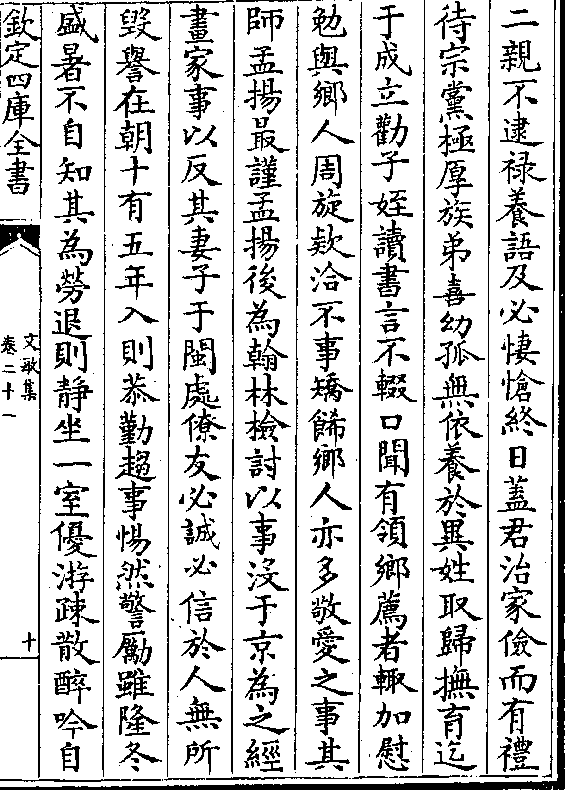 二親不逮祿養語及必悽愴終日蓋君治家儉而有禮
待宗黨極厚族弟喜幼孤無依養於異姓取歸撫育迄
于成立勸子姪讀書言不輟口聞有領鄉薦者輙加慰
勉與鄉人周旋欵洽不事矯餙鄉人亦多敬愛之事其
師孟揚最謹孟揚後為翰林檢討以事沒于京為之經
畫家事以反其妻子于閩處僚友必誠必信於人無所
毀譽在朝十有五年入則恭勤趨事惕然警勵雖隆冬
盛暑不自知其為勞退則靜坐一室優游疎散醉吟自
欽定四庫全書
文敏集
卷二十一
十